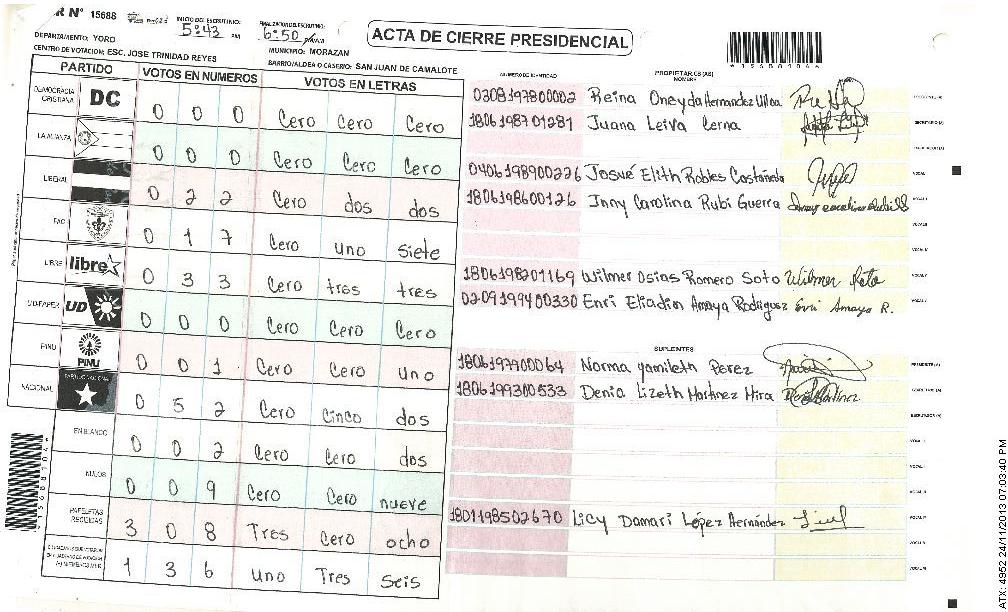 Nº 15688
INICIO DEL ESCRUTINIO: 5:43 PM
FINALIZACION DEL ESCRUTINIO: 6:50
ACTA DE CIERRE PRESIDENCIAL
DEPARTAMENTO: YORO
MUNICIPIO: MORAZAN
CENTRO DE VOTACION: ESC. JOSE TRINIDAD REYES
BARRIO/ALDEA O CASERIO: SAN JUAN DE CAMALOTE
PARTIDO VOTOS EN NUMEROS VOTOS EN LETRAS
DEMOCRACIA CRISTIANA DC 0 0 0 Cero Cero Cero
LA ALIANZA 0 0 0 Cero Cero Cero
LIBERAL 0 2 2 Cero dos dos
PAC 0 1 7 Cero uno siete
LIBRE libre 0 3 3 Cero tres tres
UD-FAPER UD 0 0 0 Cero Cero Cero
PINU PINU 0 0 1 Cero Cero uno
NACIONAL PARTIDO NACIONAL 0 5 2 Cero Cinco dos
EN BLANCO 0 0 2 Cero Cero dos
NULOS 0 0 9 Cero Cero nueve
PAPELETAS RECIBIDAS 3 0 8 Tres Cero ocho
1 3 6 uno Tres seis
NUMERO DE IDENTIDAD PROPIETARIOS (AS) NOMBRE
0208197800002 Reina Oneyda Hernandez Ulloa
1806198701281 Juana Leiva Cerna SECRETARIO (A)
0406198900226 Josué Elith Robles Castañeda VOCAL
1806198600126 Inny Carolina Rubi Guerra VOCAL
1806198201169 Wilmer Osias Romero Soto Wilmer Soto
0209199400330 Enri Eliadin Amaya Rodriguez Enri Amaya R.
SUPLENTES
1806197900064 Norma yamileth Perez PRESIDENTE (A)
1806199300533 Denia Lizeth Martinez Mira
1801198502670 Licy Damari López Hernández
156881046
ATX: 4952 24/11/2013 07:03:40 PM